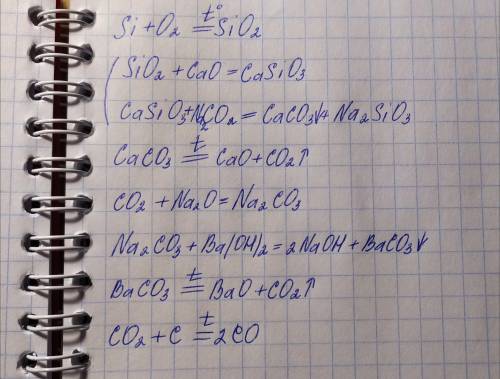 Si + O₂ =t°= SiO₂
SiO₂ + CaO = CaSiO₃
CaSiO₃ + N₂CO₂ = CaCO₃↓ + Na₂SiO₃
CaCO₃ =t= CaO + CO₂↑
CO₂ + Na₂O = Na₂CO₃
Na₂CO₃ + Ba(OH)₂ = 2NaOH + BaCO₃↓
BaCO₃ =t= BaO + CO₂↑
CO₂ + C =t= 2CO